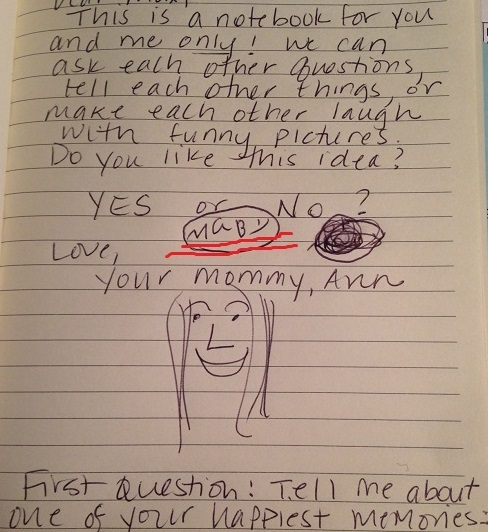 This is a notebook for you
and me only! We can
ask each other questions,
tell each other things, or
make each other laugh
with funny pictures.
Do you like this idea?
YES or No ?
MaBy
Love,
Your Mommy, Ann
First Question: Tell me about
one of your happiest memories: